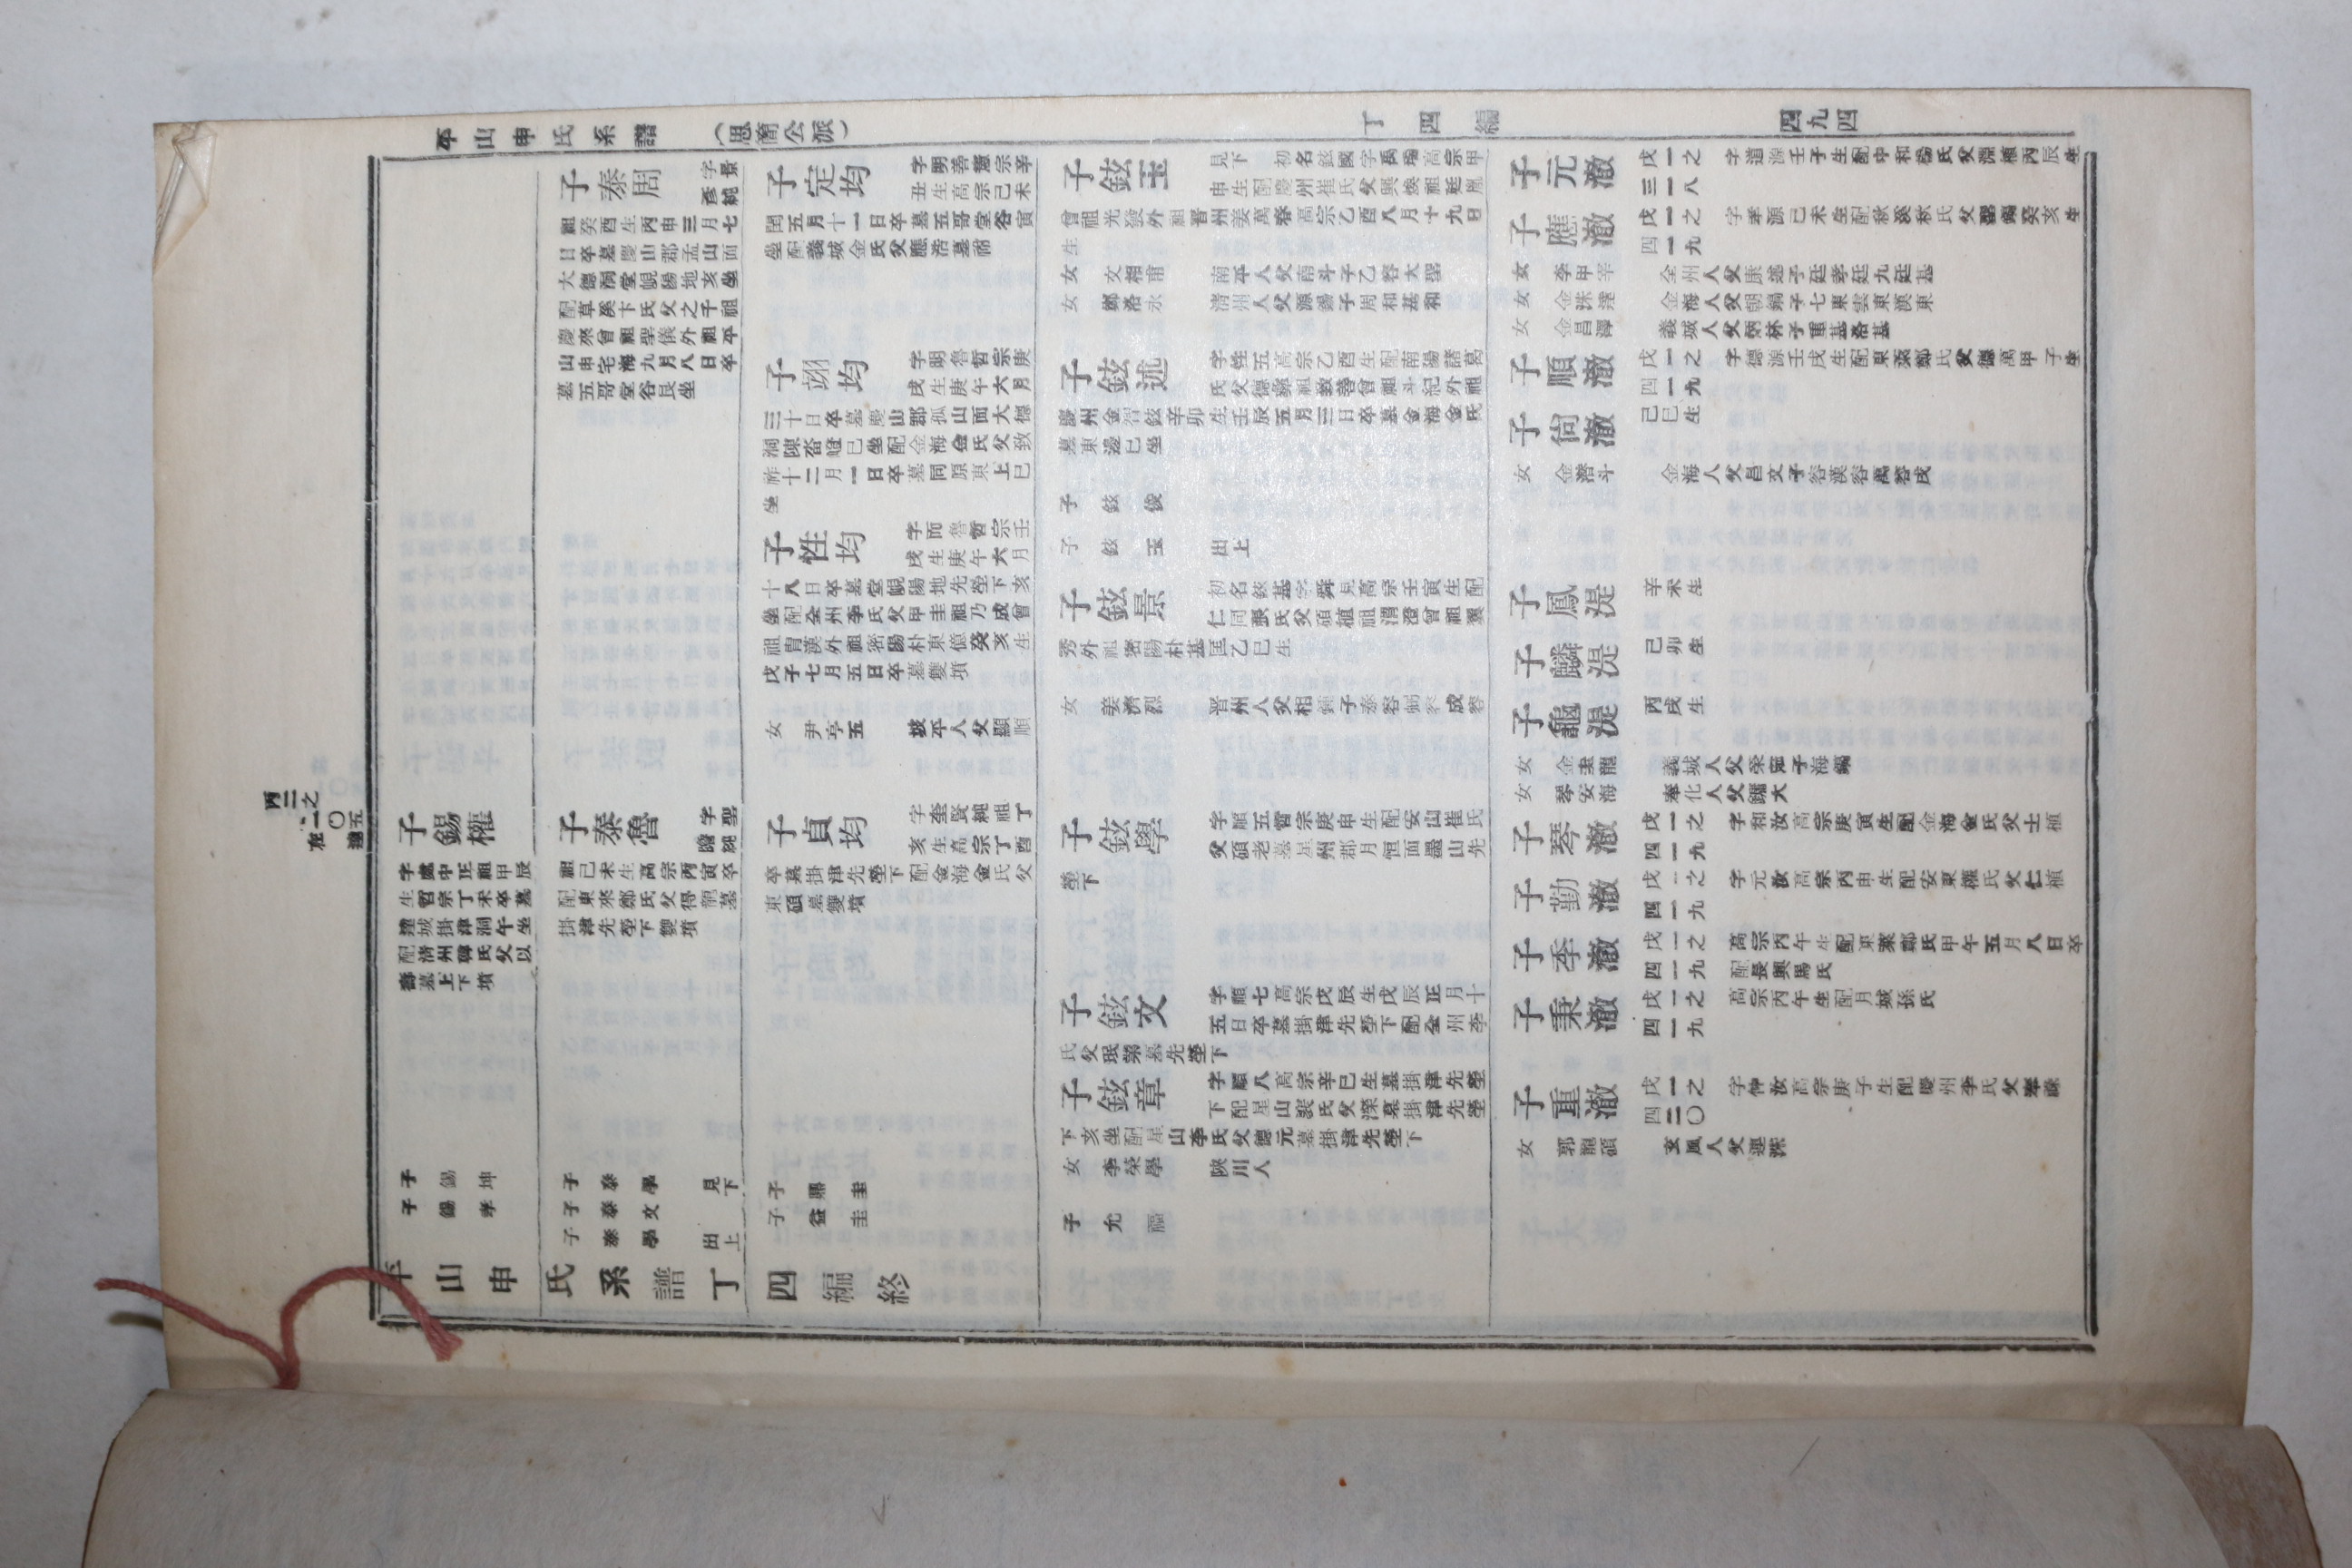 平山申氏系譜
（思簡公派）
丁四編
四九四
丙二之
二〇五
在達
子錫權
字處中正祖甲辰
生哲宗丁未卒墓
達城掛津洞午坐
配清州韓氏父以
壽墓上下墳
子錫坤
子錫孝
子泰周
字景
彥純
祖癸酉生丙申三月七
日卒墓慶山郡孟山面
大德洞堂峴陽地亥坐
配草溪卞氏父之千祖
慶來曾祖聖儀外祖平
山申宅海九月八日卒
墓五哥堂谷艮坐
子泰魯
字聖
瞻純
祖己未生高宗丙寅卒
配東來鄭氏父得龍墓
掛津先塋下雙墳
子泰學
見下
子泰文
子泰學
出上
子定均
字明善憲宗辛
丑生高宗己未
閏五月十一日卒墓五哥堂谷寅
坐配義城金氏父應浩墓祔
子翊均
字明魯哲宗庚
戌生庚午六月
三十日卒墓慶山郡孤山面大德
洞陳畓嶝巳坐配金海金氏父致
祚十二月一日卒墓同原東上巳
坐
子性均
字而魯哲宗壬
戌生庚午六月
十八日卒墓堂峴陽地先塋下亥
坐配全州李氏父甲圭祖乃成曾
祖胄漢外祖密陽朴東億癸亥生
戊子七月五日卒墓雙墳
女 尹亨五
坡平人父顯順
子貞均
字奎賢純祖丁
亥生高宗丁酉
卒墓掛津先塋下配金海金氏父
東碩墓雙墳
子鼎圭
子益圭
子鉉玉
見下 初名鉉國字禹瑞高宗甲
申生配慶州崔氏父興煥祖廷胤
曾祖光發外祖晋州姜萬春高宗乙酉八月十九日
生
女 文相甫
南平人父南斗子乙容大聖
女 鄭洛永
清州人父源錫子周和基和
子鉉述
字姓五高宗乙酉生配南陽諸葛
氏父德彝祖致善曾祖斗紀外祖
慶州金習鉉辛卯生壬辰五月三日卒墓金海金氏
墓東邊巳坐
子鉉俊
子鉉玉
出上
子鉉景
初名鉉基字舜見高宗壬寅生配
仁同張氏父碩植祖渭澄曾祖翼
秀外祖密陽朴基匡乙巳生
女 姜濟烈
晋州人父相鍾子泰容弼容成容
子鉉學
字順五哲宗庚申生配安山崔氏
父碩老墓星州郡月恒面墨山先
塋下
子鉉文
字順七高宗戊辰生戊辰正月十
五日卒墓掛津先塋下配全州李
氏父珉第墓先塋下
子鉉章
字順八高宗辛巳生墓掛津先塋
下配星山裵氏父深墓掛津先塋
下亥坐配星山李氏父德元墓掛津先塋下
女 李榮學
陜川人
子允福
子元澈
戊一之
三一八
字道源壬子生配中和楊氏父淵植丙辰生
子應澈
戊一之
四一九
字孝源己未生配秋溪秋氏父聖鐲癸亥生
女 李甲宰
全州人父康述子廷孝廷九廷基
女 金洙達
金海人父朝鍋子七東雲東漢東
女 金昌澤
義城人父炳林子重基洛基
子順澈
戊一之
四一九
字德源壬戌生配東萊鄭氏父德萬甲子生
子尙澈
己巳生
女 金潛斗
金海人父昌文子容漢容萬容戌
子鳳湜
辛未生
子麟湜
己卯生
子龜湜
丙戌生
女 金圭龍
義城人父榮冕子海鎬
女 琴安海
奉化人父鏞大
子琴澈
戊一之
四一九
字和汝高宗庚寅生配金海金氏父士植
子勤澈
戊一之
四一九
字元汝高宗丙申生配安東權氏父仁植
子季澈
戊一之
四一九
高宗丙午生配東萊鄭氏甲午五月八日卒
配長興馬氏
子秉澈
戊一之
四一九
高宗丙午生配月城孫氏
子重澈
戊一之
四二〇
字仲汝高宗庚子生配慶州李氏父奉祿
女 郭龍碩
玄風人父連洙
平山申氏系譜丁四編終